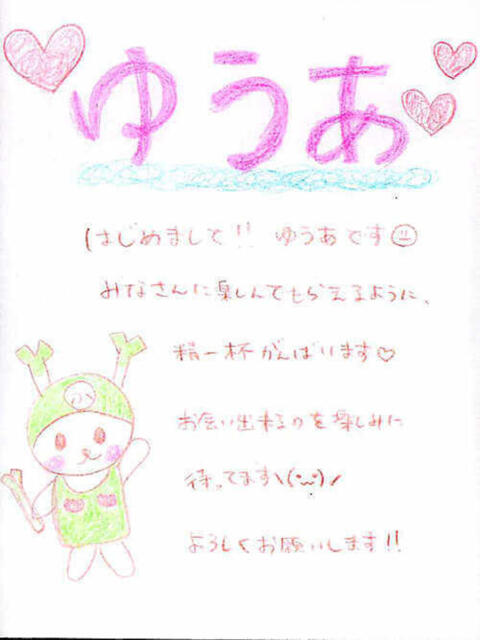 ゆうあ
はじめまして!! ゆうあです
みなさんに楽しんでもらえるように、
精一杯がんばります♡
お会い出来るのを楽しみに
待ってます\(^-^)/
よろしくお願いします!!
ふ